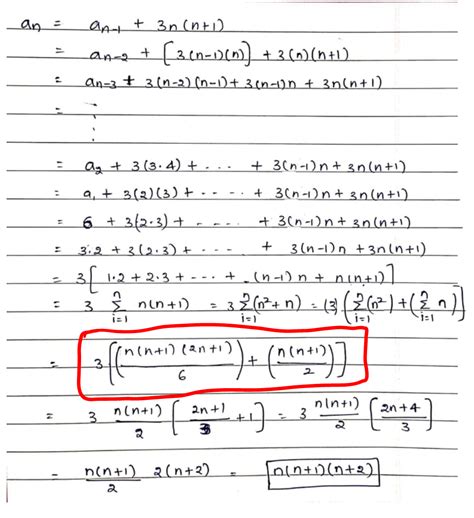 an = an-1 + 3n(n+1)
= an-2 + [3(n-1)(n)] + 3(n)(n+1)
= an-3 + 3(n-2)(n-1) + 3(n-1)n + 3n(n+1)
= ⋮
= a2 + 3(3·4) + ---- + 3(n-1)n + 3n(n+1)
= a1 + 3(2)(3) + ---- + 3(n-1)n + 3n(n+1)
= 6 + 3(2·3) + ---- + 3(n-1)n + 3n(n+1)
= 3·2 + 3(2·3) + ---- + 3(n-1)n + 3n(n+1)
= 3[1·2 + 2·3 + --- + (n-1)n + n(n+1)]
= 3 n∑i=1 n(n+1) = 3 n∑i=1 (n²+n) = (3) (n∑i=1 (n²) + (n∑i=1 n)
= 3[((n(n+1)(2n+1))/6) + ((n(n+1))/2)]
= 3 n(n+1)/2 [(2n+1)/3 + 1] = 3 n(n+1)/2 [(2n+4)/3]
= n(n+1)/2 2(n+2) = n(n+1)(n+2)